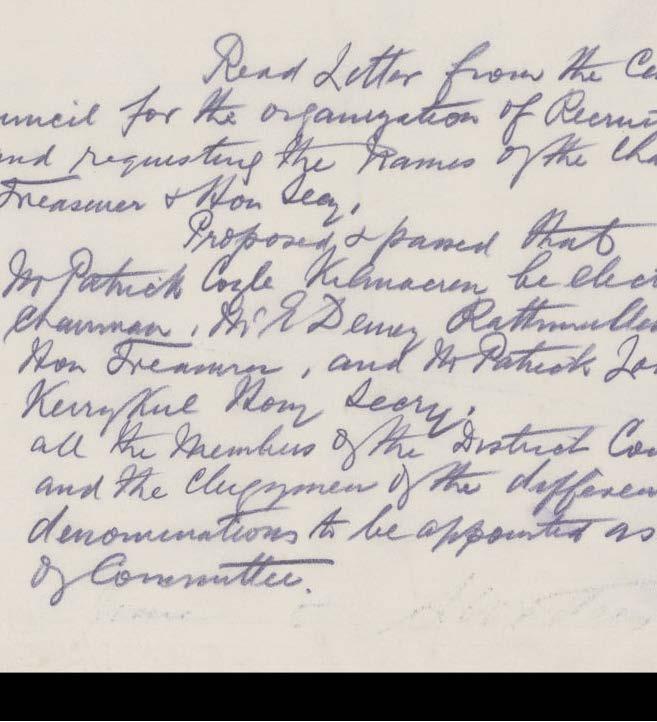 Read Letter from the Ce
uncil for the organization of Recrui
and requesting the Names of the Cha
Treasurer & Hon Secy.
Proposed & passed that
Mr Patrick Coyle Kilmacren be elect
Chairman, Mr E Deuey Rathmullen
Hon Treasurer, and Mr Patrick
Kerrykeel Hony Secry.
all the Members of the District Cou
and the Clergymen of the differen
denominations to be appointed as
of Committee.